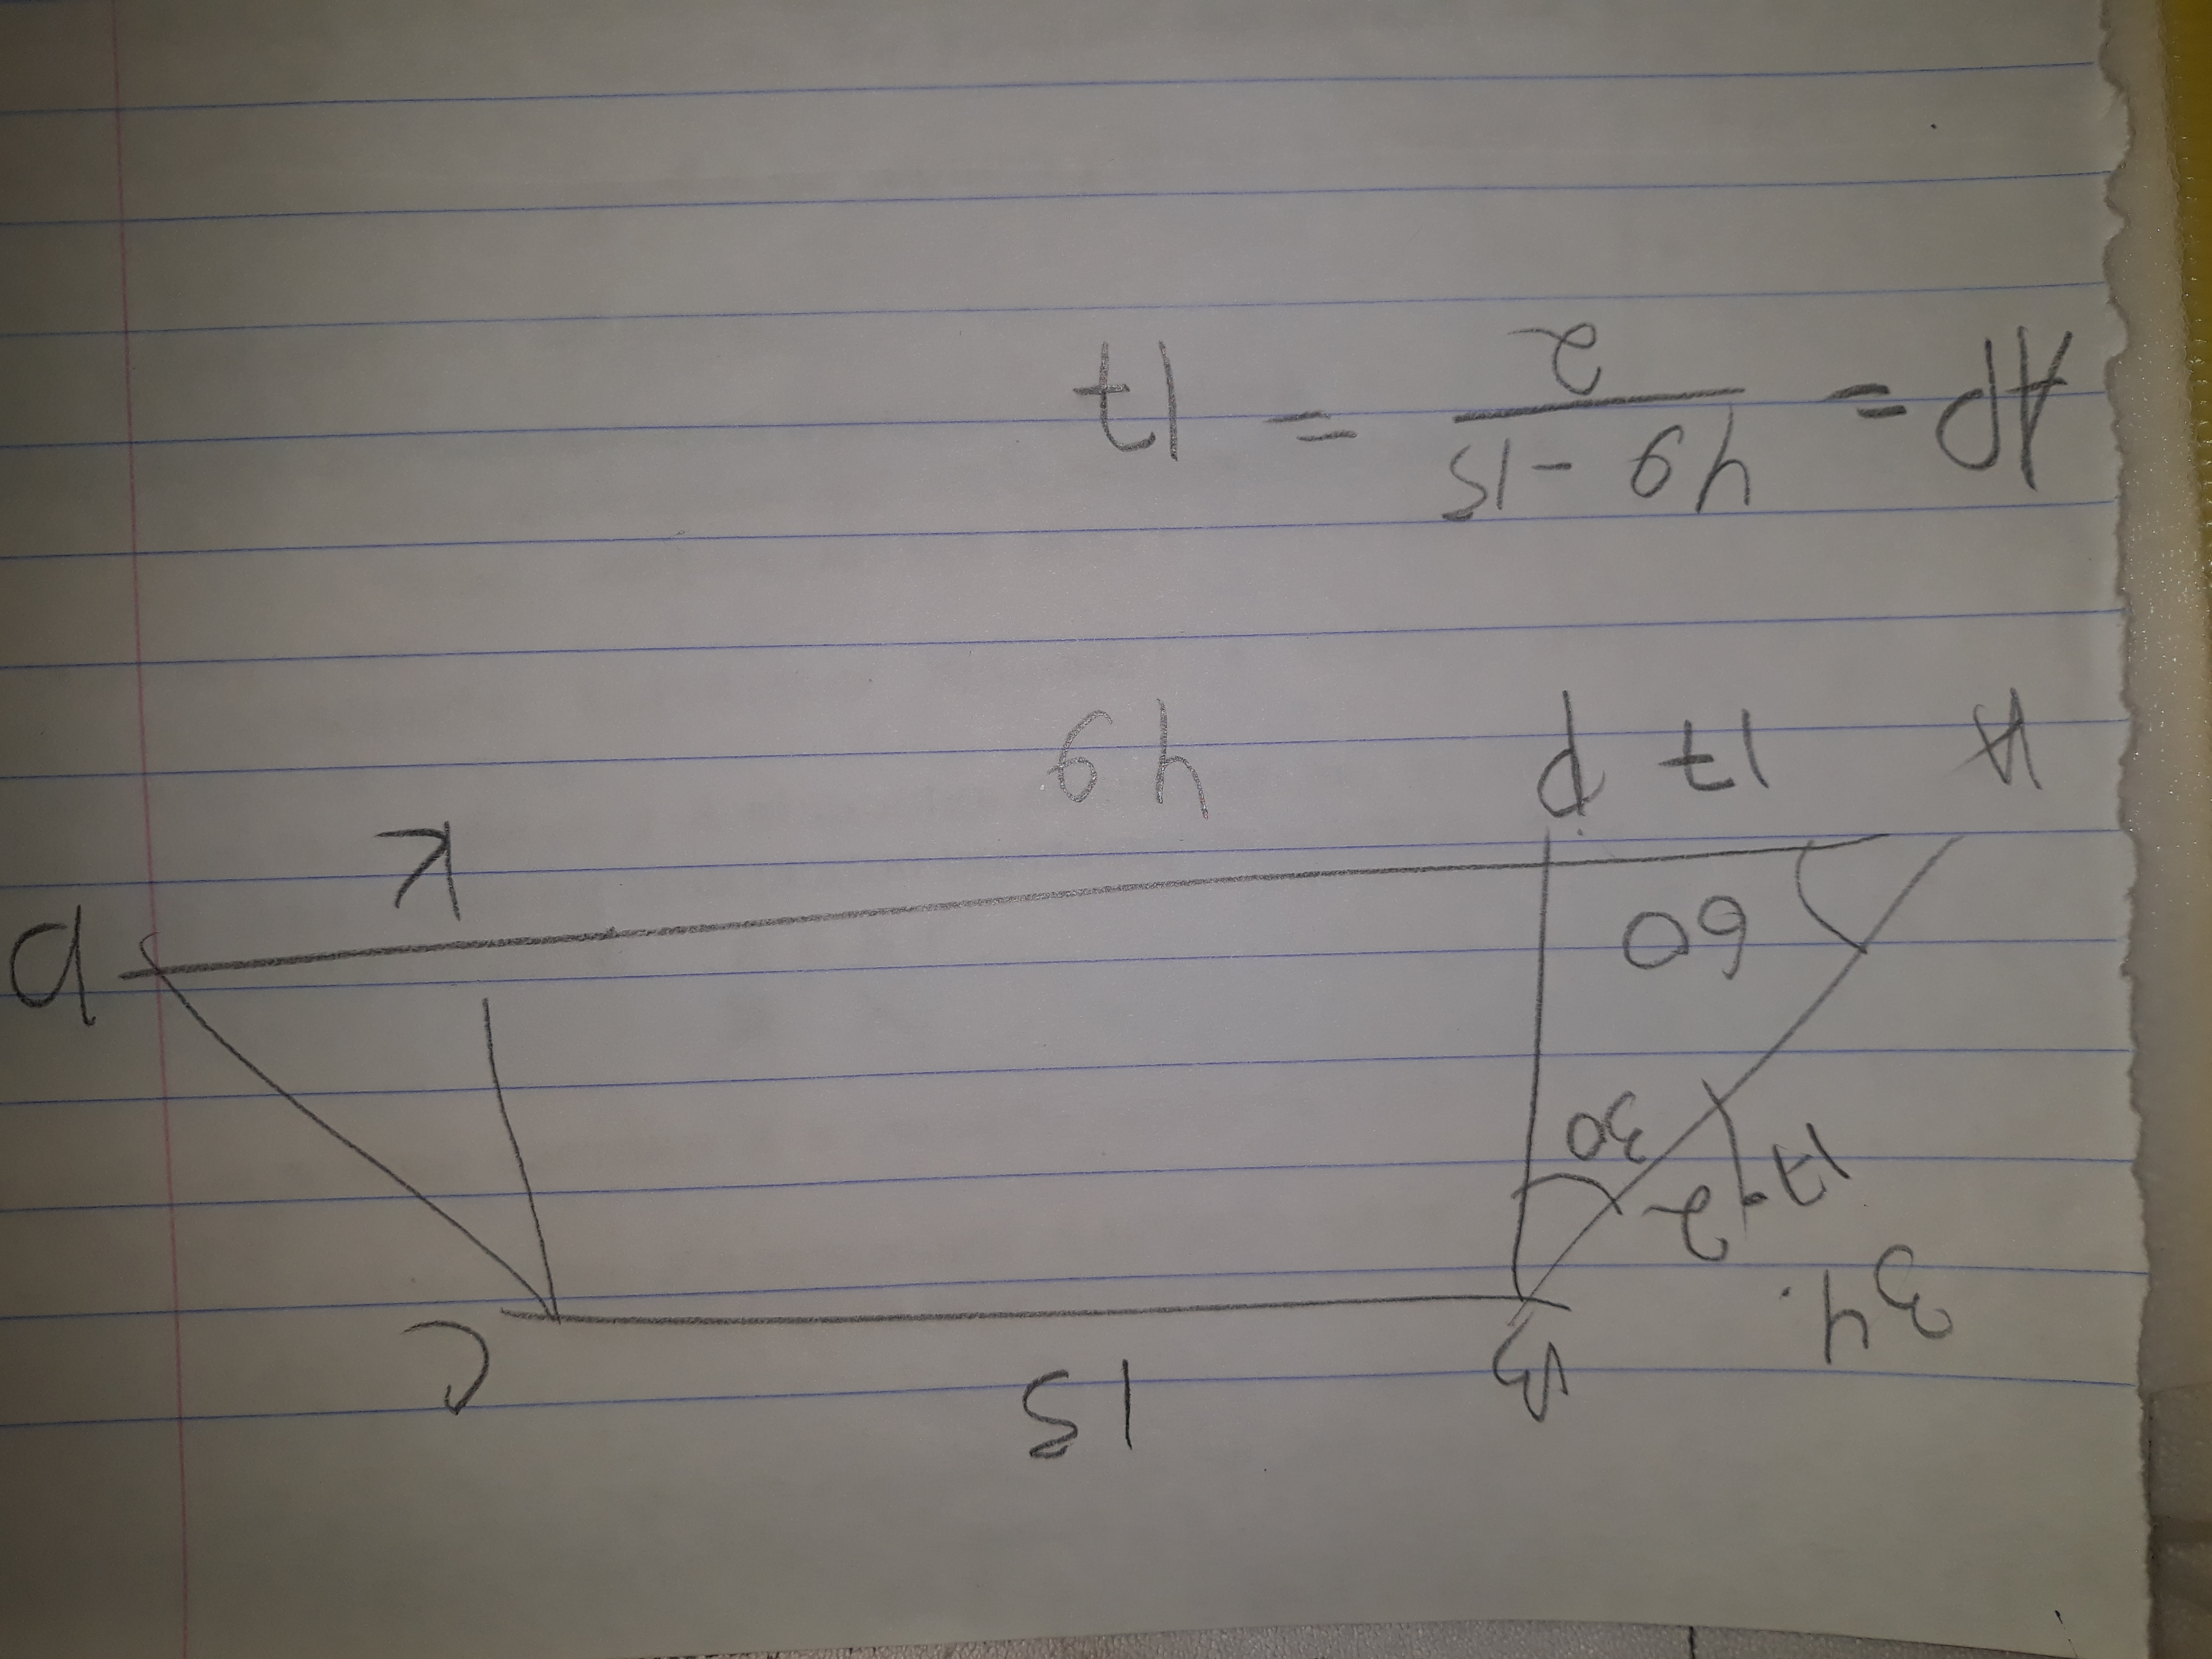 B 15 C
34.
17.2
30
60
A 17 P 49 K D
AP = 49 - 15 / 2 = 17